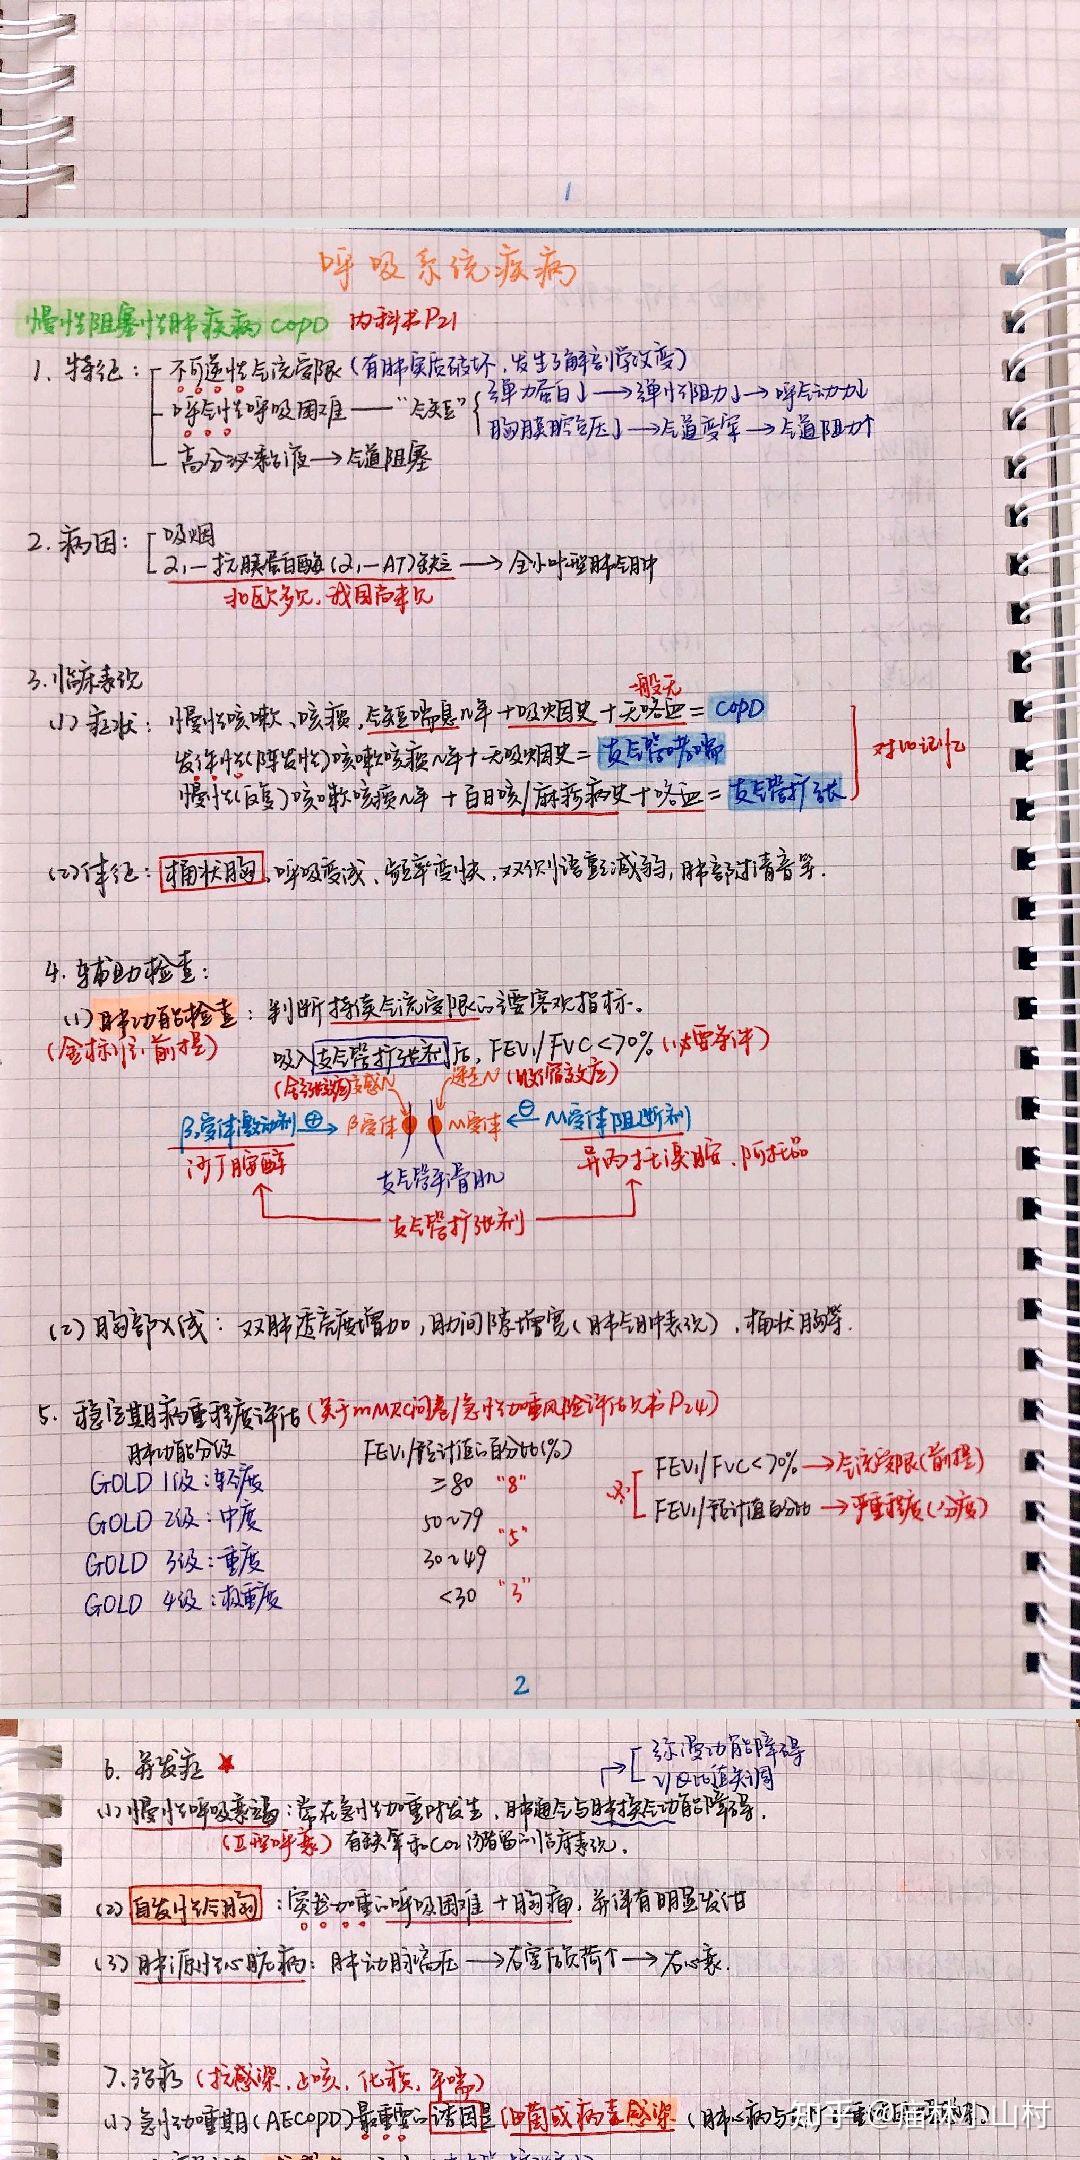 1
呼吸系统疾病
慢性阻塞性肺疾病 COPD 内科书P21
1. 特征: 不可逆性气流受限(有肺实质破坏,发生了解剖学改变)
呼气性呼吸困难——"气短" 弹力蛋白↓→弹性阻力↓→呼气动力↓
胸膜腔负压↓→气道变窄→气道阻力↑
高分泌黏液→气道阻塞
2. 病因: 吸烟
α₁-抗胰蛋白酶(α₁-AT)缺乏→全小叶型肺气肿
北欧多见,我国尚未见
3. 临床表现
一般无
(1) 症状: 慢性咳嗽、咳痰、气短喘息n年+吸烟史+无咯血= COPD
发作性(阵发性)咳嗽咳痰n年+无吸烟史=支气管哮喘
对比记忆
慢性(反复)咳嗽咳痰n年+百日咳/麻疹病史+咯血=支气管扩张
(2) 体征: 桶状胸、呼吸变浅、频率变快,双侧语颤减弱,肺部过清音等.
4. 辅助检查:
(1) 肺功能检查: 判断持续气流受限的主要客观指标.
(金标准,前提)
吸入支气管扩张剂后, FEV₁/FVC<70% (必要条件)
(舒张效应)交感N 迷走N(收缩效应)
β₂受体激动剂 ⊕→ β受体 M受体 ←⊖ M受体阻断剂
沙丁胺醇 异丙托溴胺、阿托品
支气管平滑肌
支气管扩张剂
(2) 胸部X线: 双肺透亮度增加,肋间隙增宽(肺气肿表现),桶状胸等.
5. 稳定期病重程度评估(关于mMRC问卷/急性加重风险评估见书P24)
肺功能分级 FEV₁/预计值的百分比(%)
GOLD 1级:轻度 ≥80 "8"
FEV₁/FVC<70%→气流受限(前提)
GOLD 2级:中度 50~79
FEV₁/预计值百分比→严重程度(分度)
"5"
GOLD 3级:重度 30~49
GOLD 4级:极重度 <30 "3"
2
6. 并发症 ★
弥漫功能障碍
V/Q比值失调
(1) 慢性呼吸衰竭:常在急性加重时发生,肺通气与肺换气功能障碍.
(Ⅱ型呼衰) 有缺氧和CO₂潴留的临床表现.
(2) 自发性气胸:突然加重的呼吸困难+胸痛,并伴有明显发绀
(3) 肺源性心脏病:肺动脉高压→右室后负荷↑→右心衰.
7. 治疗(抗感染、止咳、化痰、平喘)
(1) 急性加重期(AECOPD)最重要的诱因是细菌或病毒感染(肺心病与
知乎
山村